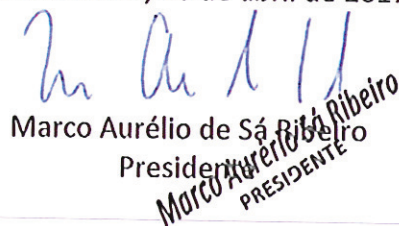 de abril de 2017
Marco Aurélio de Sá Ribeiro
Presidente
Marco Aurério Sá Ribeiro
PRESIDENTE